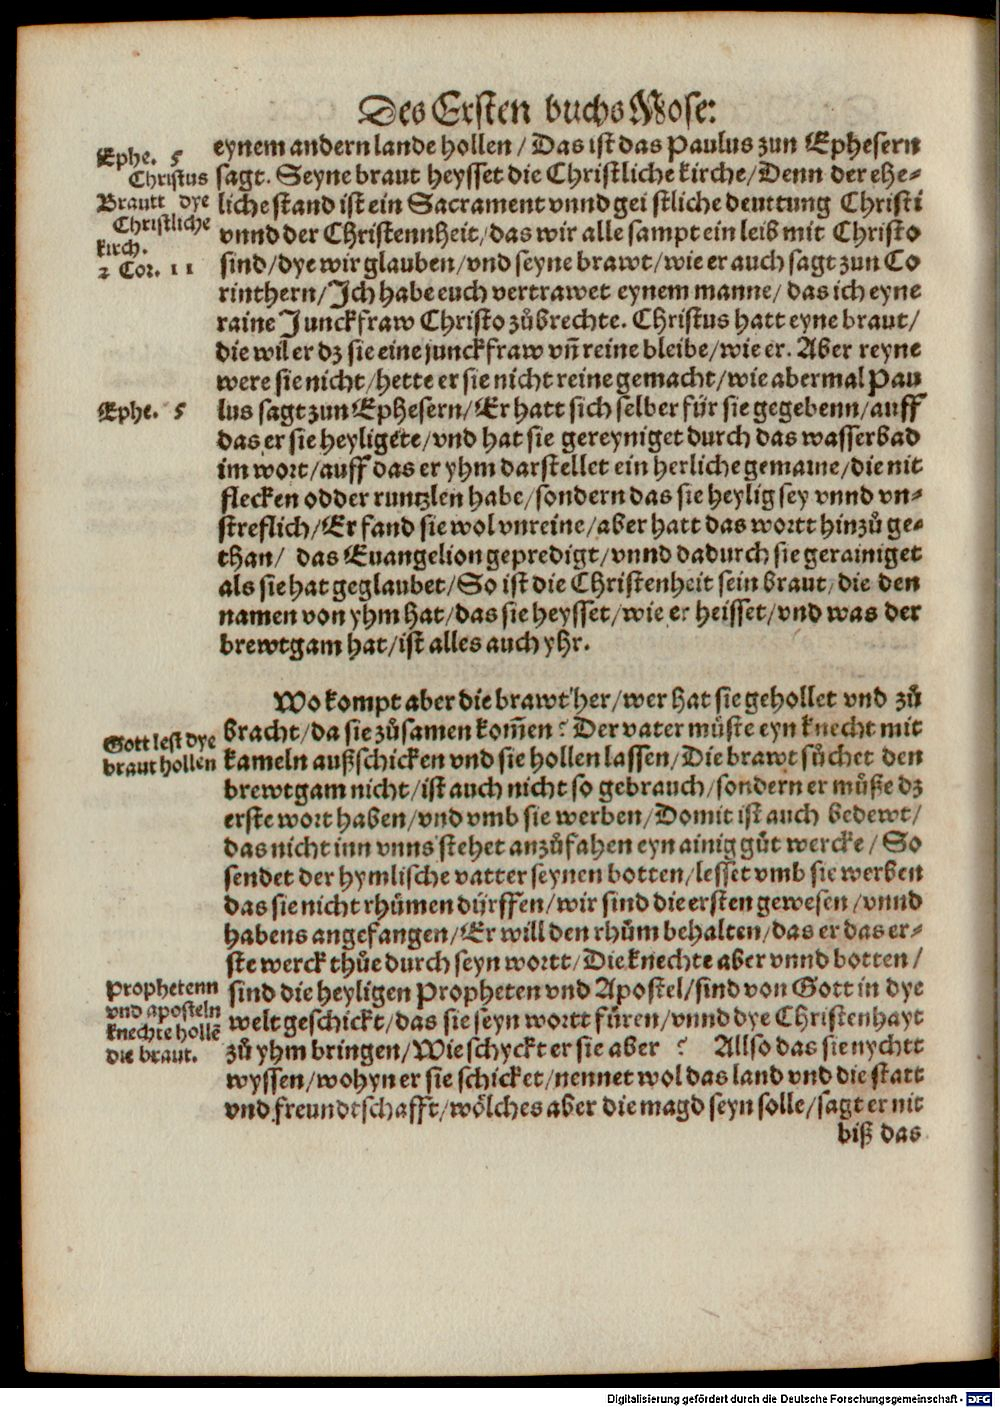 Des Ersten buchs Mose:
Ephe. 5
Christus
Brautt dye
Christliche
kirch.
2 Cor. 11
eynem andern lande hollen / Das ist das Paulus zun Ephesern
sagt. Seyne braut heysset die Christliche kirche / Denn der ehe-
liche stand ist ein Sacrament vnnd gei stliche deuttung Christi
vnnd der Christennheit / das wir alle sampt ein leib mit Christo
sind / dye wir glauben / vnd seyne brawt / wie er auch sagt zun Co
rinthern / Ich habe euch vertrawet eynem manne / das ich eyne
raine Junckfraw Christo zůbrechte. Christus hatt eyne braut /
die wil er dz sie eine junckfraw vñ reine bleibe / wie er. Aber reyne
were sie nicht / hette er sie nicht reine gemacht / wie abermal Pau
Ephe. 5
lus sagt zun Ephesern / Er hatt sich selber für sie gegebenn / auff
das er sie heyligete / vnd hat sie gereyniget durch das wasserbad
im wort / auff das er yhm darstellet ein herliche gemaine / die nit
flecken odder runtzlen habe / sondern das sie heylig sey vnnd vn-
streflich / Er fand sie wol vnreine / aber hatt das wortt hinzů ge-
than / das Euangelion gepredigt / vnnd dadurch sie gerainiget
als sie hat geglaubet / So ist die Christenheit sein braut / die den
namen von yhm hat / das sie heysset / wie er heisset / vnd was der
brewtgam hat / ist alles auch yhr.
Wo kompt aber die brawt her / wer hat sie gehollet vnd zů
Gott lest dye
braut hollen
bracht / da sie zůsamen kom̃en ? Der vater můste eyn knecht mit
kameln außschicken vnd sie hollen lassen / Die brawt sůchet den
brewtgam nicht / ist auch nicht so gebrauch / sondern er můße dz
erste wort haben / vnd vmb sie werben / Domit ist auch bedewt /
das nicht inn vnns stehet anzůfahen eyn ainig gůt wercke / So
sendet der hymlische vatter seynen botten / lesset vmb sie werben
das sie nicht rhůmen dürffen / wir sind die ersten gewesen / vnnd
habens angefangen / Er will den rhům behalten / das er das er-
ste werck thůe durch seyn wortt / Die knechte aber vnnd botten /
Prophetenn
vnd aposteln
knechte hollẽ
die braut.
sind die heyligen Propheten vnd Apostel / sind von Gott in dye
welt geschickt / das sie seyn wortt füren / vnnd dye Christenhayt
zů yhm bringen / Wie schyckt er sie aber ? Allso das sie nychtt
wyssen / wohyn er sie schicket / nennet wol das land vnd die statt
vnd freundtschafft / wölches aber die magd seyn solle / sagt er nit
biß das
Digitalisierung gefördert durch die Deutsche Forschungsgemeinschaft - DFG